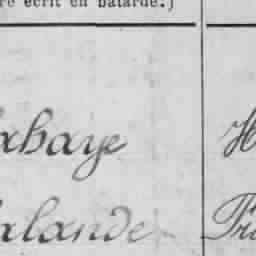 re écrit en bâtarde.)
abaye H
alande Tr